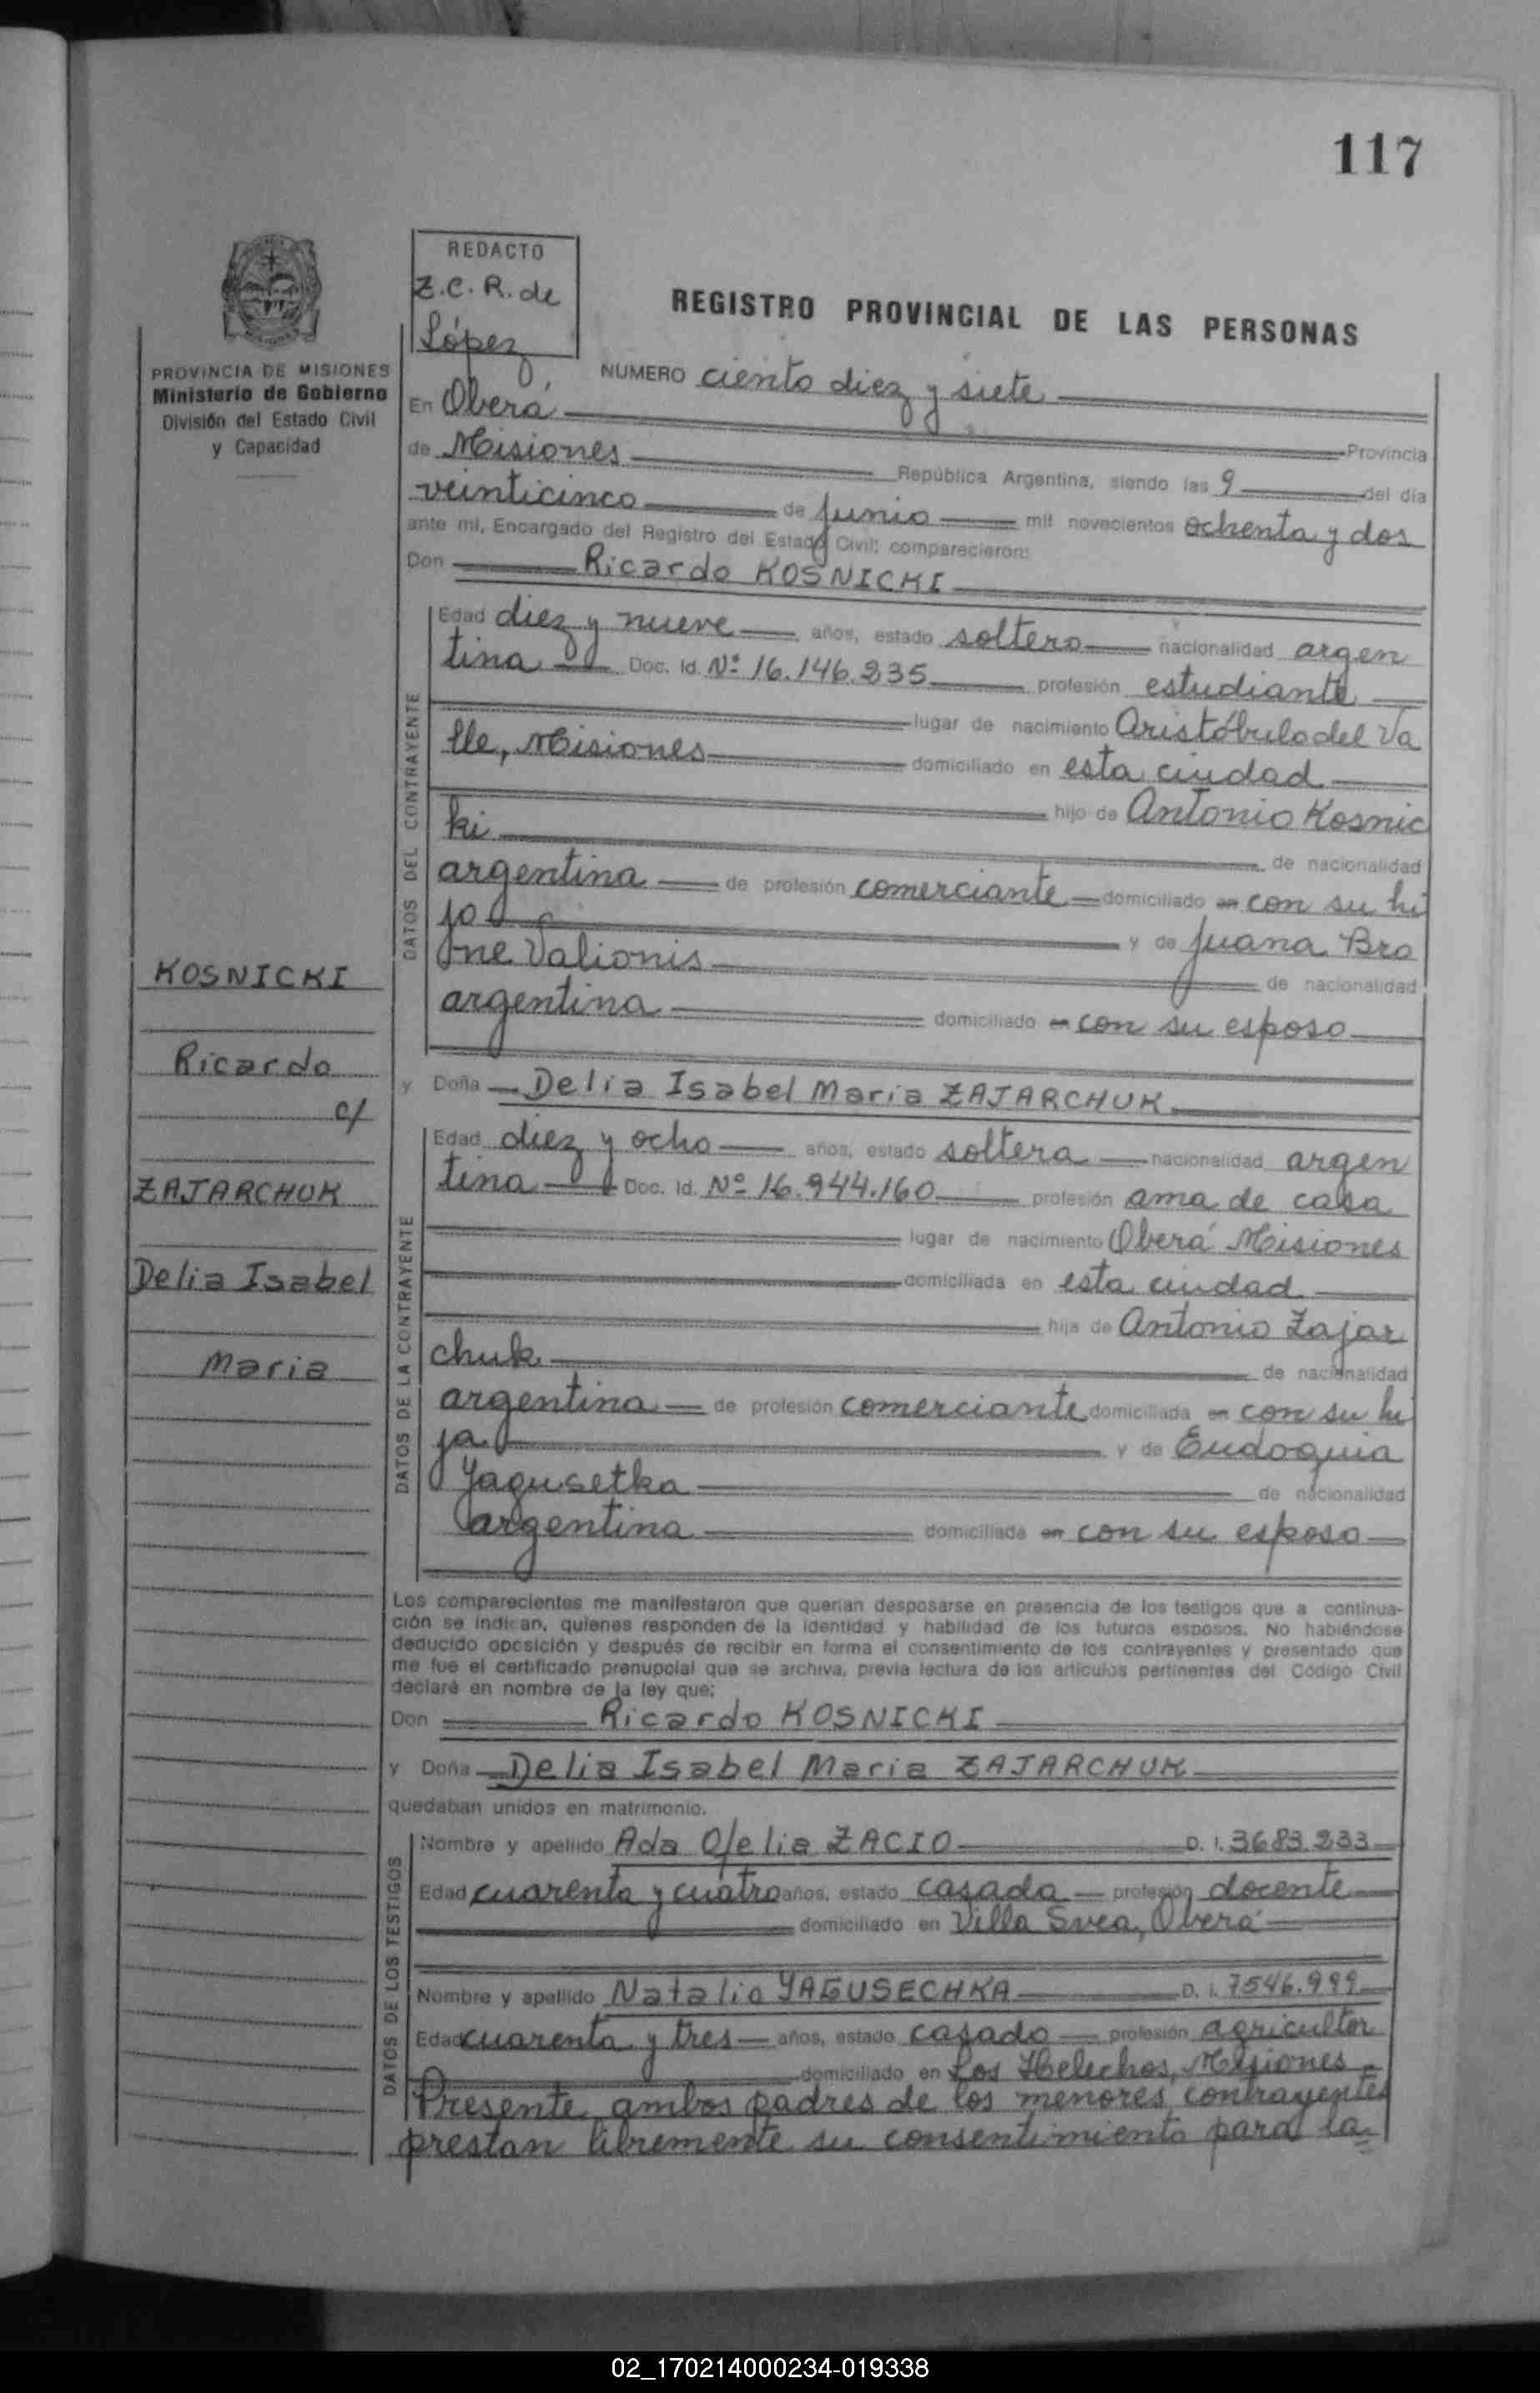 117
REDACTO
Z.C.R. de
López
REGISTRO PROVINCIAL DE LAS PERSONAS
PROVINCIA DE MISIONES
Ministerio de Gobierno
División del Estado Civil
y Capacidad
NUMERO ciento diez y siete
En Oberá Provincia
de Misiones República Argentina, siendo las 9 del día
veinticinco de Junio mil novecientos ochenta y dos
ante mi, Encargado del Registro del Estado Civil; comparecieron:
Don Ricardo KOSNICKI
DATOS DEL CONTRAYENTE
Edad diez y nueve años, estado soltero nacionalidad argen
tina Doc. Id. Nº 16.146.235 profesión estudiante
lugar de nacimiento Aristóbulo del Va
lle, Misiones domiciliado en esta ciudad
hijo de Antonio Kosnic
ki de nacionalidad
argentina de profesión comerciante domiciliado en con su hi
jo y de Juana Bro
ne Valionis de nacionalidad
argentina domiciliado en con su esposo
KOSNICKI
Ricardo
c/
ZAJARCHUK
Delia Isabel
Maria
y Doña Delia Isabel Maria ZAJARCHUK
DATOS DE LA CONTRAYENTE
Edad diez y ocho años, estado soltera nacionalidad argen
tina Doc. Id. Nº 16.944.160 profesión ama de casa
lugar de nacimiento Oberá Misiones
domiciliada en esta ciudad
hija de Antonio Zajar
chuk de nacionalidad
argentina de profesión comerciante domiciliada en con su hi
ja y de Eudoquia
Yagusetka de nacionalidad
argentina domiciliada en con su esposo
Los comparecientes me manifestaron que querían desposarse en presencia de los testigos que a continua-
ción se indican, quienes responden de la identidad y habilidad de los futuros esposos. No habiéndose
deducido oposición y después de recibir en forma el consentimiento de los contrayentes y presentado que
me fue el certificado prenupcial que se archiva, previa lectura de los artículos pertinentes del Código Civil
declaré en nombre de la ley que:
Don Ricardo KOSNICKI
y Doña Delia Isabel Maria ZAJARCHUK
quedaban unidos en matrimonio.
DATOS DE LOS TESTIGOS
Nombre y apellido Ada Ofelia ZACIO D. I. 3683.233
Edad cuarenta y cuatro años, estado casada profesión docente
domiciliado en Villa Svea, Oberá
Nombre y apellido Natalio YAGUSECHKA D. I. 7546.999
Edad cuarenta y tres años, estado casado profesión agricultor
domiciliado en Los Helechos, Misiones
Presente ambos padres de los menores contrayentes
prestan libremente su consentimiento para la
02_170214000234-019338